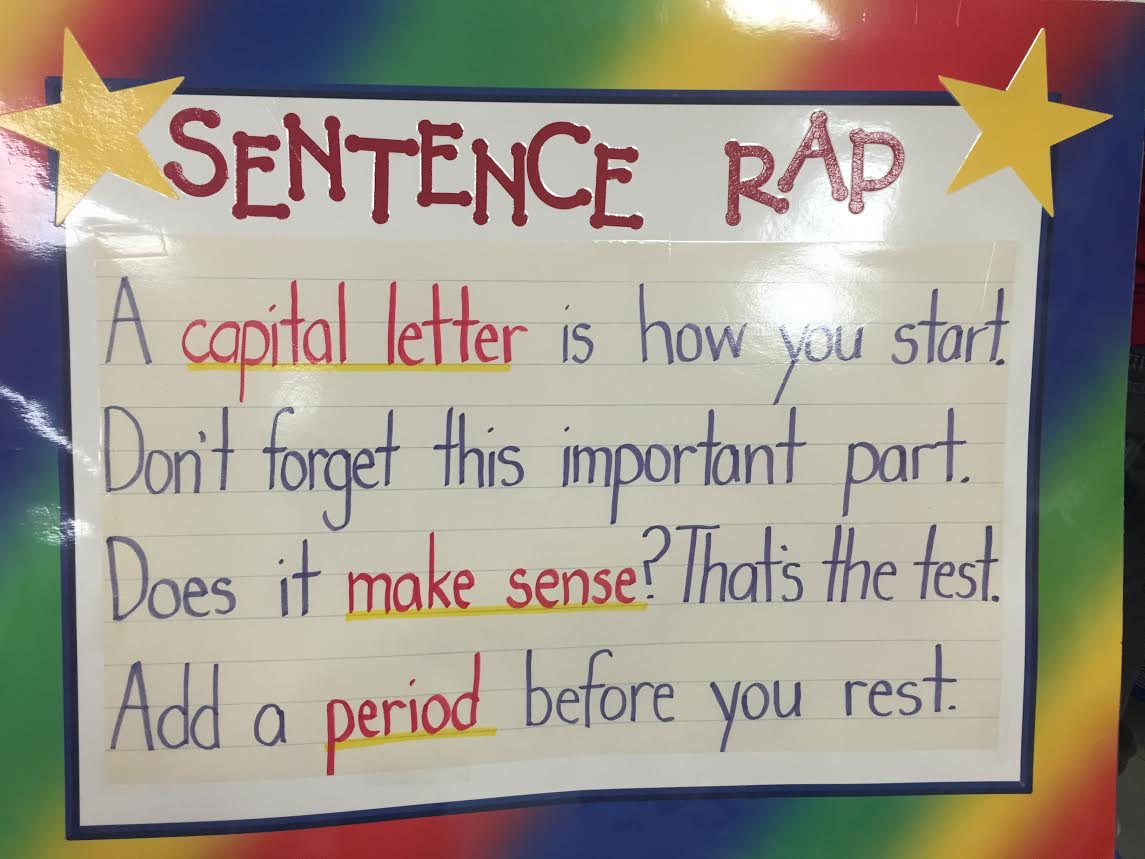 SENTENCE RAP
A capital letter is how you start.
Don't forget this important part.
Does it make sense? That's the test.
Add a period before you rest.